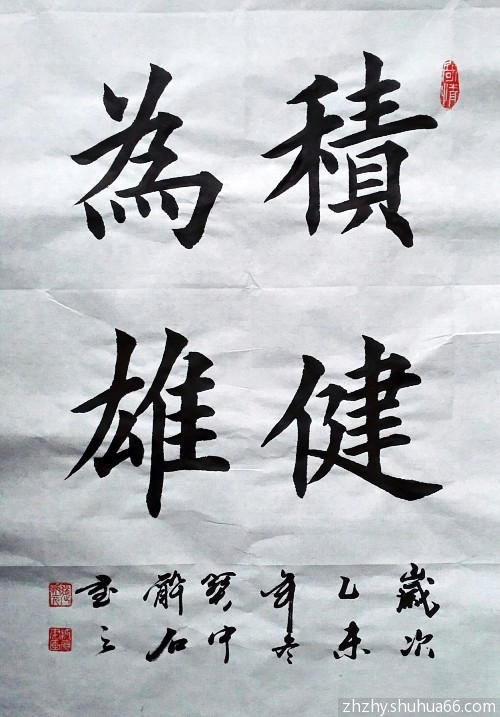 積健
為雄
歲次
乙未
年冬
中
石
之
zhzhy.shuhua66.com